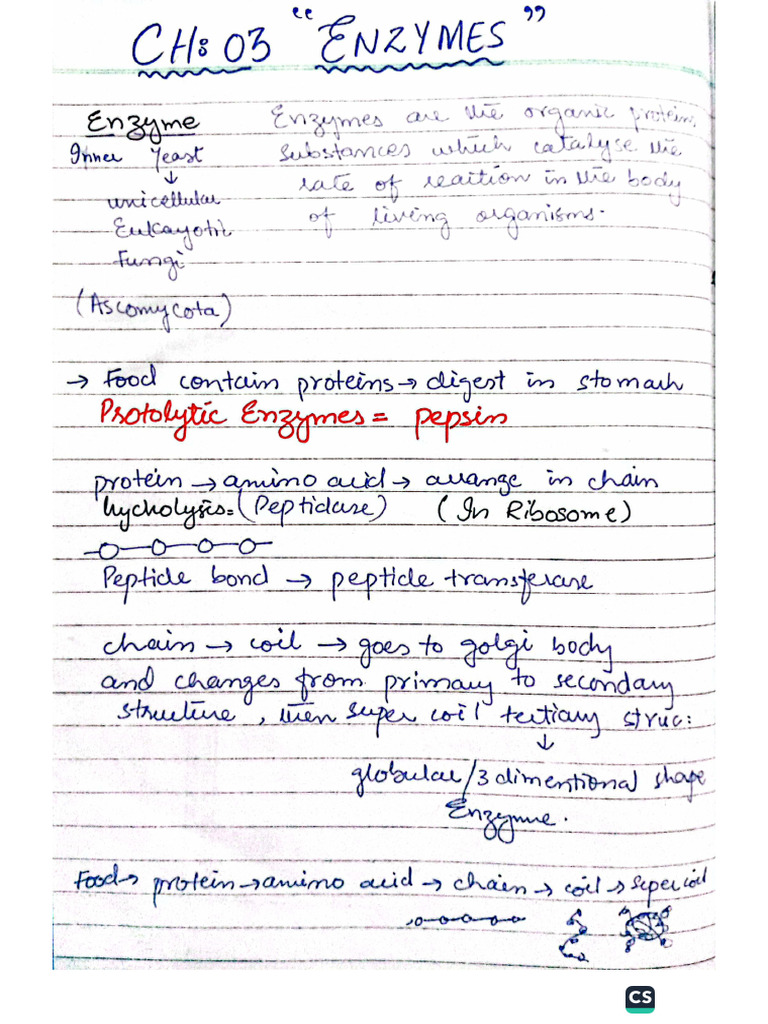 CH: 03 "ENZYMES"
Enzyme
Inner Yeast
↓
unicellular
Eukayotic
Fungi
(Ascomycota)
Enzymes are the organic protein
substances which catalyse the
rate of reaction in the body
of living organisms.
→ Food contain proteins → digest in stomach
Protolytic Enzymes = pepsin
protein → amino acid → arrange in chain
hycholysis = (Peptidase) (In Ribosome)
Peptide bond → peptide transferase
chain → coil → goes to golgi body
and changes from primary to secondary
structure, then super coil tertiary struc:
↓
globular/3 dimentional shape
Enzyme.
Food → protein → amino acid → chain → coil → super coil
CS